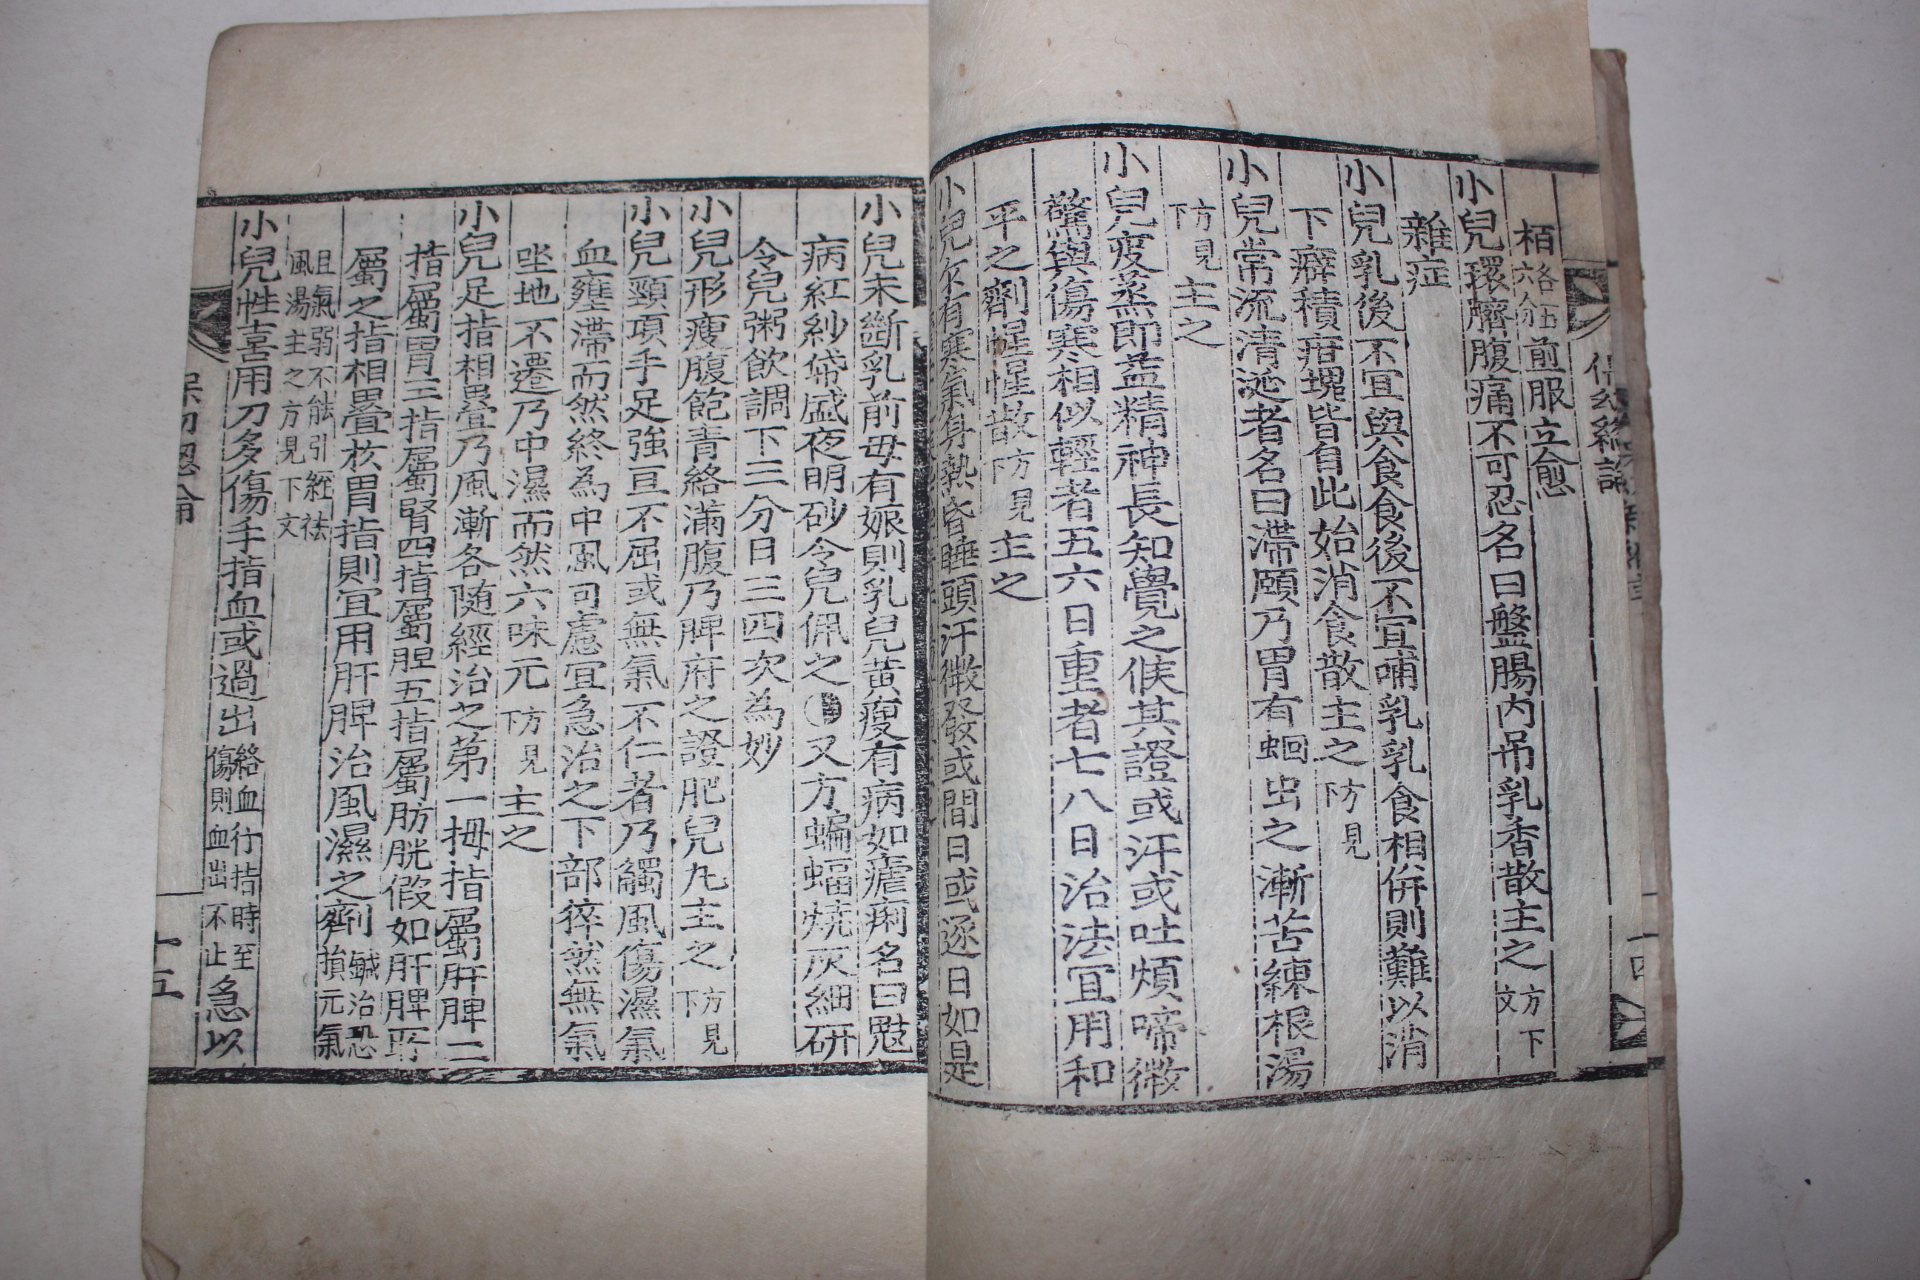 保幼緫論
栢各五六分煎服立愈
小兒環臍腹痛不可忍名曰盤腸內吊乳香散主之方下文
雜症
小兒乳後不宜與食食後不宜哺乳乳食相併則難以消
下癖積疳塊皆自此始消食散主之方見下
小兒常流清涎者名曰滯頤乃胃有蛔出之漸苦練根湯
主之方見下
小兒変蒸即益精神長知覺之候其證或汗或吐煩啼微
驚與傷寒相似輕者五六日重者七八日治法宜用和
平之劑惺惺散方見下主之
小兒有寒氣身熱昏睡頭汗微發或間日或逐日如是
小兒未斷乳前母有娠則乳兒黃瘦有病如瘧痢名曰鬾
病紅紗帒盛夜明砂令兒佩之又方蝙蝠燒灰細研
令兒粥飲調下三分日三四次為妙
小兒形瘦腹飽青絡滿腹乃脾府之證肥兒丸主之方見下
小兒頸項手足強亘不屈或無氣不仁者乃觸風傷濕氣
血壅滯而然終為中風可慮宜急治之下部猝然無氣
坐地不遷乃中濕而然六味元方見下主之
小兒足指相疊乃風漸各隨經治之第一拇指屬肝脾二
指屬胃三指屬腎四指屬胆五指屬肪胱假如肝脾所
屬之指相疊核胃指則宜用肝脾治風濕之劑鍼治恐損元氣
且氣弱不能引經祛風湯主之方見下文
小兒性喜用刀多傷手指血或過出絡血行指時至傷則血出不止急以
十五